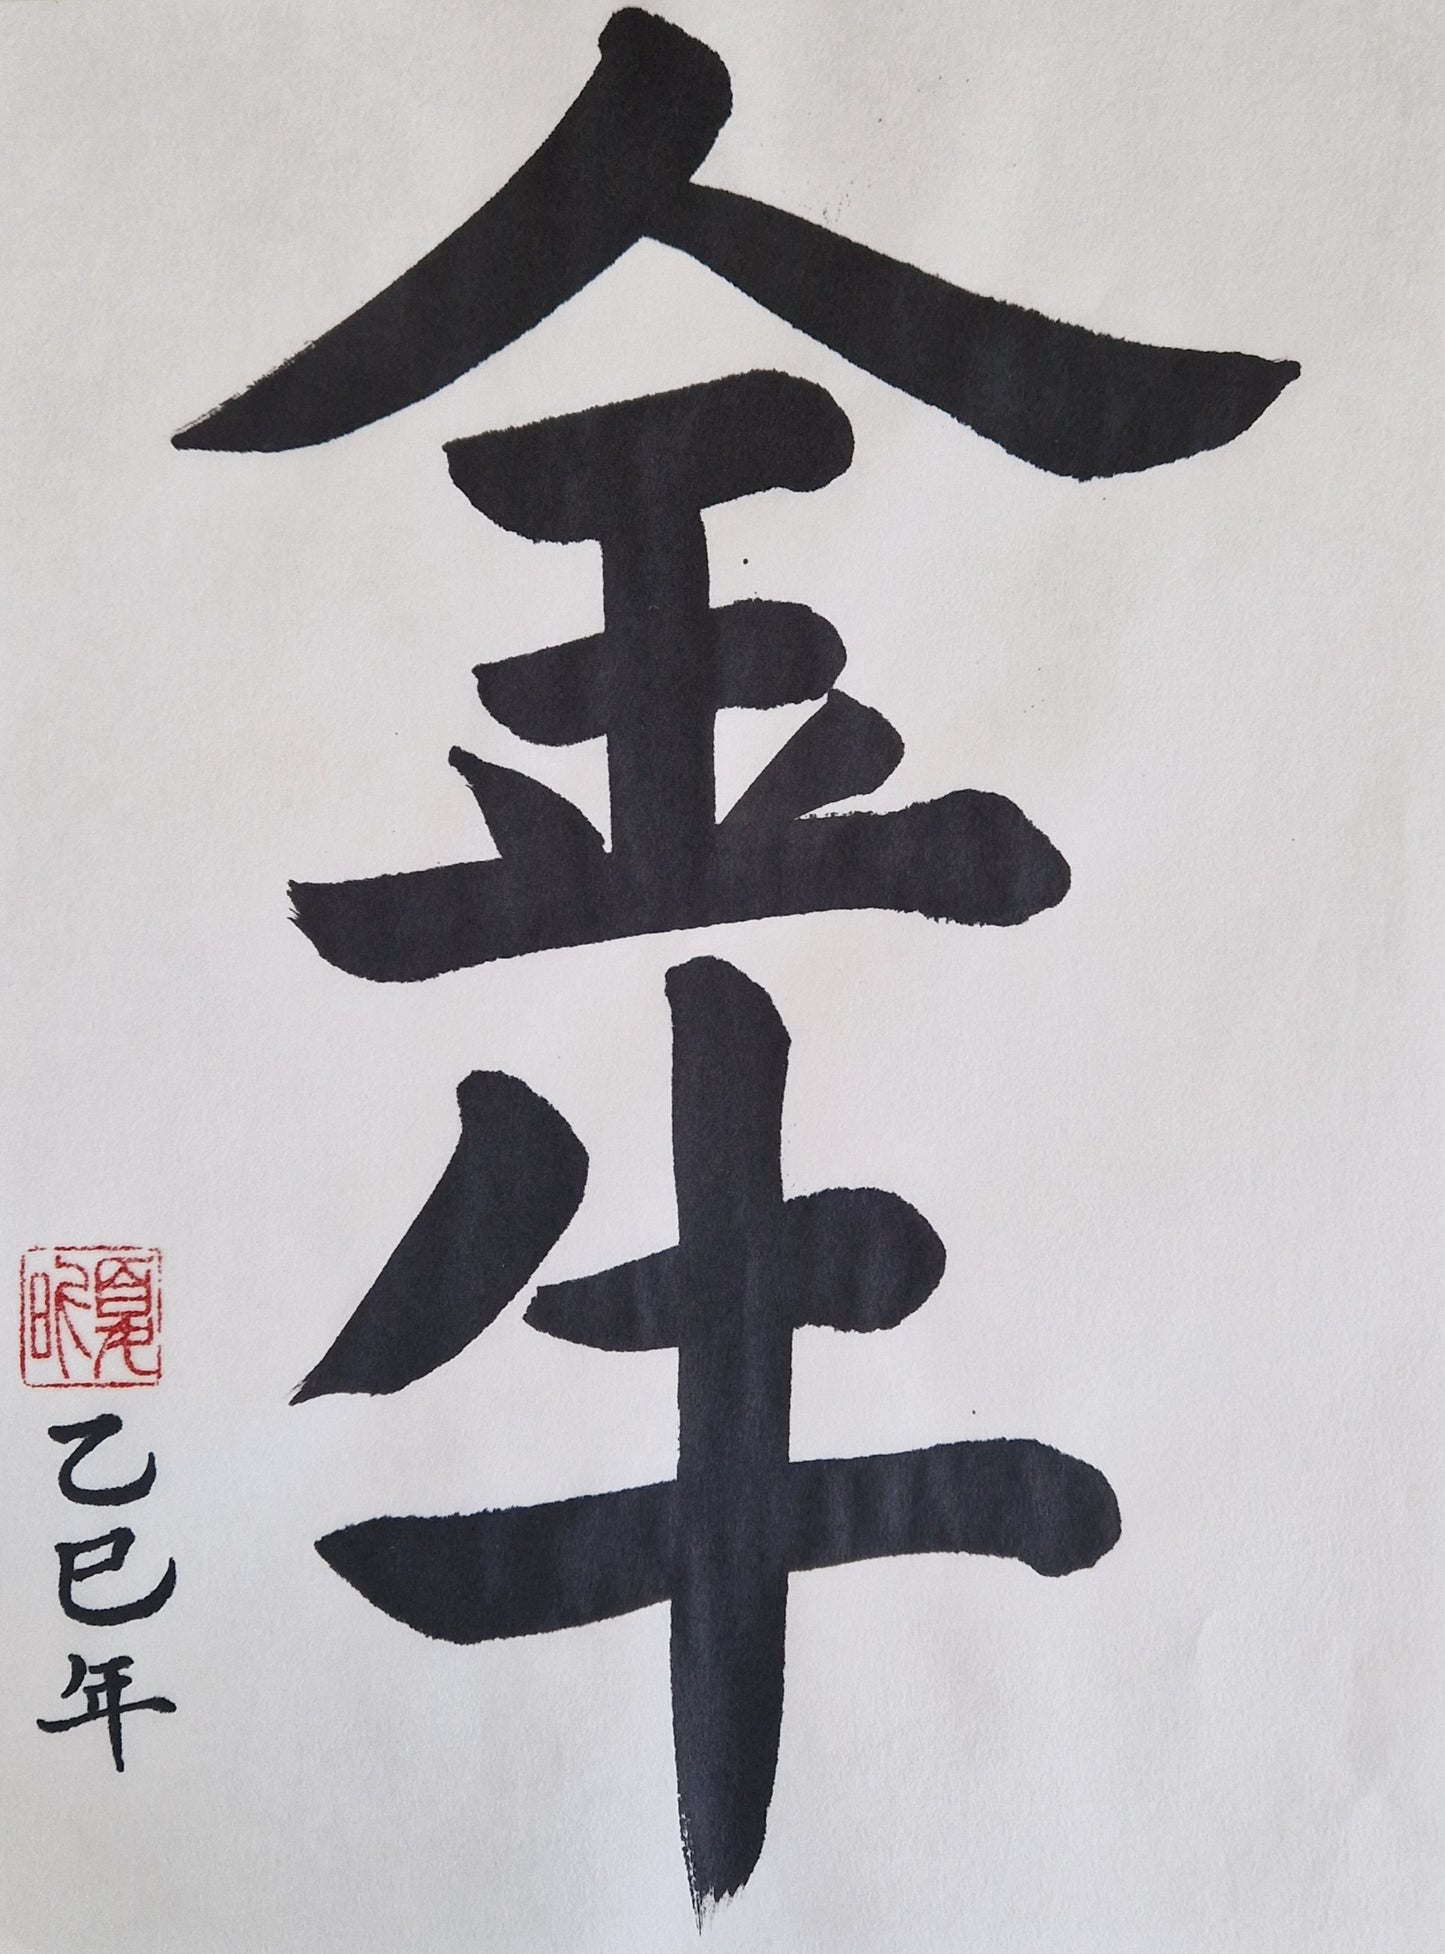 金牛
乙巳年